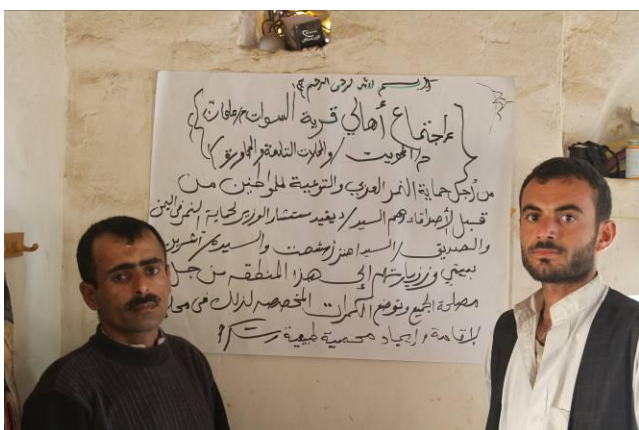 بسم الله الرحمن الرحيم
اجتماع أهالي قرية السوات / ملحان
م/ المحويت / والمحلات التابعة والمجاورة
من أجل حماية النمر العربي والتوعية للمواطنين من
قبل الأصدقاء وهم السيد / ديفيد مستشار الوزير لحماية النمر في اليمن
والصديق / السيد
إلى هذا المنطقه من
مصلحة الجميع ووضع الكمرات المخصصه لذلك في
لإقامة وإيجاد محمية طبيعية